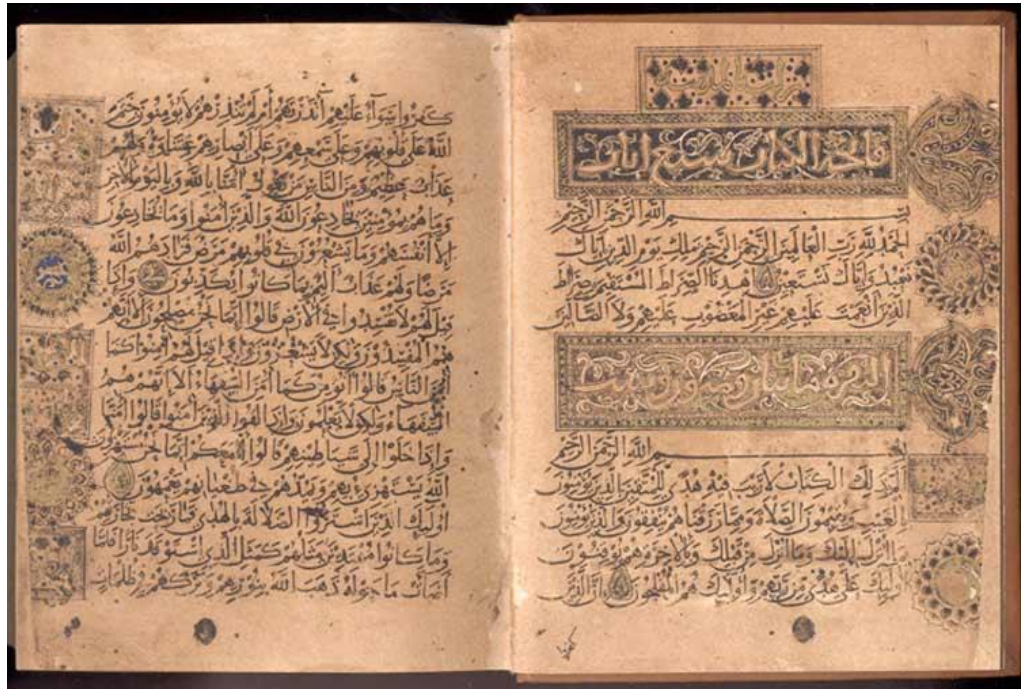 فاتحة الكتاب سبع ايات
بِسْمِ اللَّهِ الرَّحْمَنِ الرَّحِيمِ
الحَمْدُ لِلَّهِ رَبِّ العَالَمِينَ الرَّحْمَنِ الرَّحِيمِ مَلِكِ يَوْمِ الدِّينِ إِيَّاكَ
نَعْبُدُ وَإِيَّاكَ نَسْتَعِينُ اهْدِنَا الصِّرَاطَ المُسْتَقِيمَ صِرَاطَ
الَّذِينَ أَنْعَمْتَ عَلَيْهِمْ غَيْرِ المَغْضُوبِ عَلَيْهِمْ وَلَا الضَّالِّينَ
البقرة مائتان وثمانون وست
بِسْمِ اللَّهِ الرَّحْمَنِ الرَّحِيمِ
الم ذَلِكَ الكِتَابُ لَا رَيْبَ فِيهِ هُدًى لِلْمُتَّقِينَ الَّذِينَ يُؤْمِنُونَ
بِالغَيْبِ وَيُقِيمُونَ الصَّلَاةَ وَمِمَّا رَزَقْنَاهُمْ يُنْفِقُونَ وَالَّذِينَ يُؤْمِنُونَ
بِمَا أُنْزِلَ إِلَيْكَ وَمَا أُنْزِلَ مِنْ قَبْلِكَ وَبِالآخِرَةِ هُمْ يُوقِنُونَ
أُولَيِكَ عَلَى هُدًى مِنْ رَبِّهِمْ وَأُولَيِكَ هُمُ المُفْلِحُونَ إِنَّ الَّذِينَ
كفروا
كَفَرُوا سَوَآءٌ عَلَيْهِمْ أَأَنْذَرْتَهُمْ أَمْ لَمْ تُنْذِرْهُمْ لَا يُؤْمِنُونَ خَتَمَ
اللَّهُ عَلَى قُلُوبِهِمْ وَعَلَى سَمْعِهِمْ وَعَلَى أَبْصَارِهِمْ غِشَاوَةٌ وَلَهُمْ
عَذَابٌ عَظِيمٌ وَمِنَ النَّاسِ مَنْ يَقُولُ آمَنَّا بِاللَّهِ وَبِاليَوْمِ الآخِرِ
وَمَا هُمْ بِمُؤْمِنِينَ يُخَادِعُونَ اللَّهَ وَالَّذِينَ آمَنُوا وَمَا يُخَادِعُونَ
إِلَّا أَنْفُسَهُمْ وَمَا يَشْعُرُونَ فِي قُلُوبِهِمْ مَرَضٌ فَزَادَهُمُ اللَّهُ
مَرَضًا وَلَهُمْ عَذَابٌ أَلِيمٌ بِمَا كَانُوا يُكَذِّبُونَ وَإِذَا
قِيلَ لَهُمْ لَا تُفْسِدُوا فِي الأَرْضِ قَالُوا إِنَّمَا نَحْنُ مُصْلِحُونَ أَلَا إِنَّهُمْ
هُمُ المُفْسِدُونَ وَلَكِنْ لَا يَشْعُرُونَ وَإِذَا قِيلَ لَهُمْ آمِنُوا كَمَا
آمَنَ النَّاسُ قَالُوا أَنُؤْمِنُ كَمَا آمَنَ السُّفَهَاءُ أَلَا إِنَّهُمْ هُمُ
السُّفَهَاءُ وَلَكِنْ لَا يَعْلَمُونَ وَإِذَا لَقُوا الَّذِينَ آمَنُوا قَالُوا آمَنَّا
وَإِذَا خَلَوْا إِلَى شَيَاطِينِهِمْ قَالُوا إِنَّا مَعَكُمْ إِنَّمَا نَحْنُ مُسْتَهْزِئُونَ
اللَّهُ يَسْتَهْزِئُ بِهِمْ وَيَمُدُّهُمْ فِي طُغْيَانِهِمْ يَعْمَهُونَ
أُولَيِكَ الَّذِينَ اشْتَرَوُا الضَّلَالَةَ بِالهُدَى فَمَا رَبِحَتْ تِجَارَتُهُمْ
وَمَا كَانُوا مُهْتَدِينَ مَثَلُهُمْ كَمَثَلِ الَّذِي اسْتَوْقَدَ نَارًا فَلَمَّا
أَضَاءَتْ مَا حَوْلَهُ ذَهَبَ اللَّهُ بِنُورِهِمْ وَتَرَكَهُمْ فِي ظُلُمَاتٍ